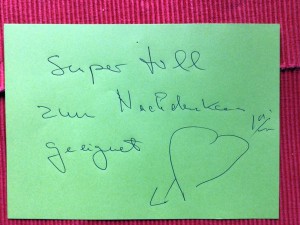 Super toll
zum Nachdenken
geeignet